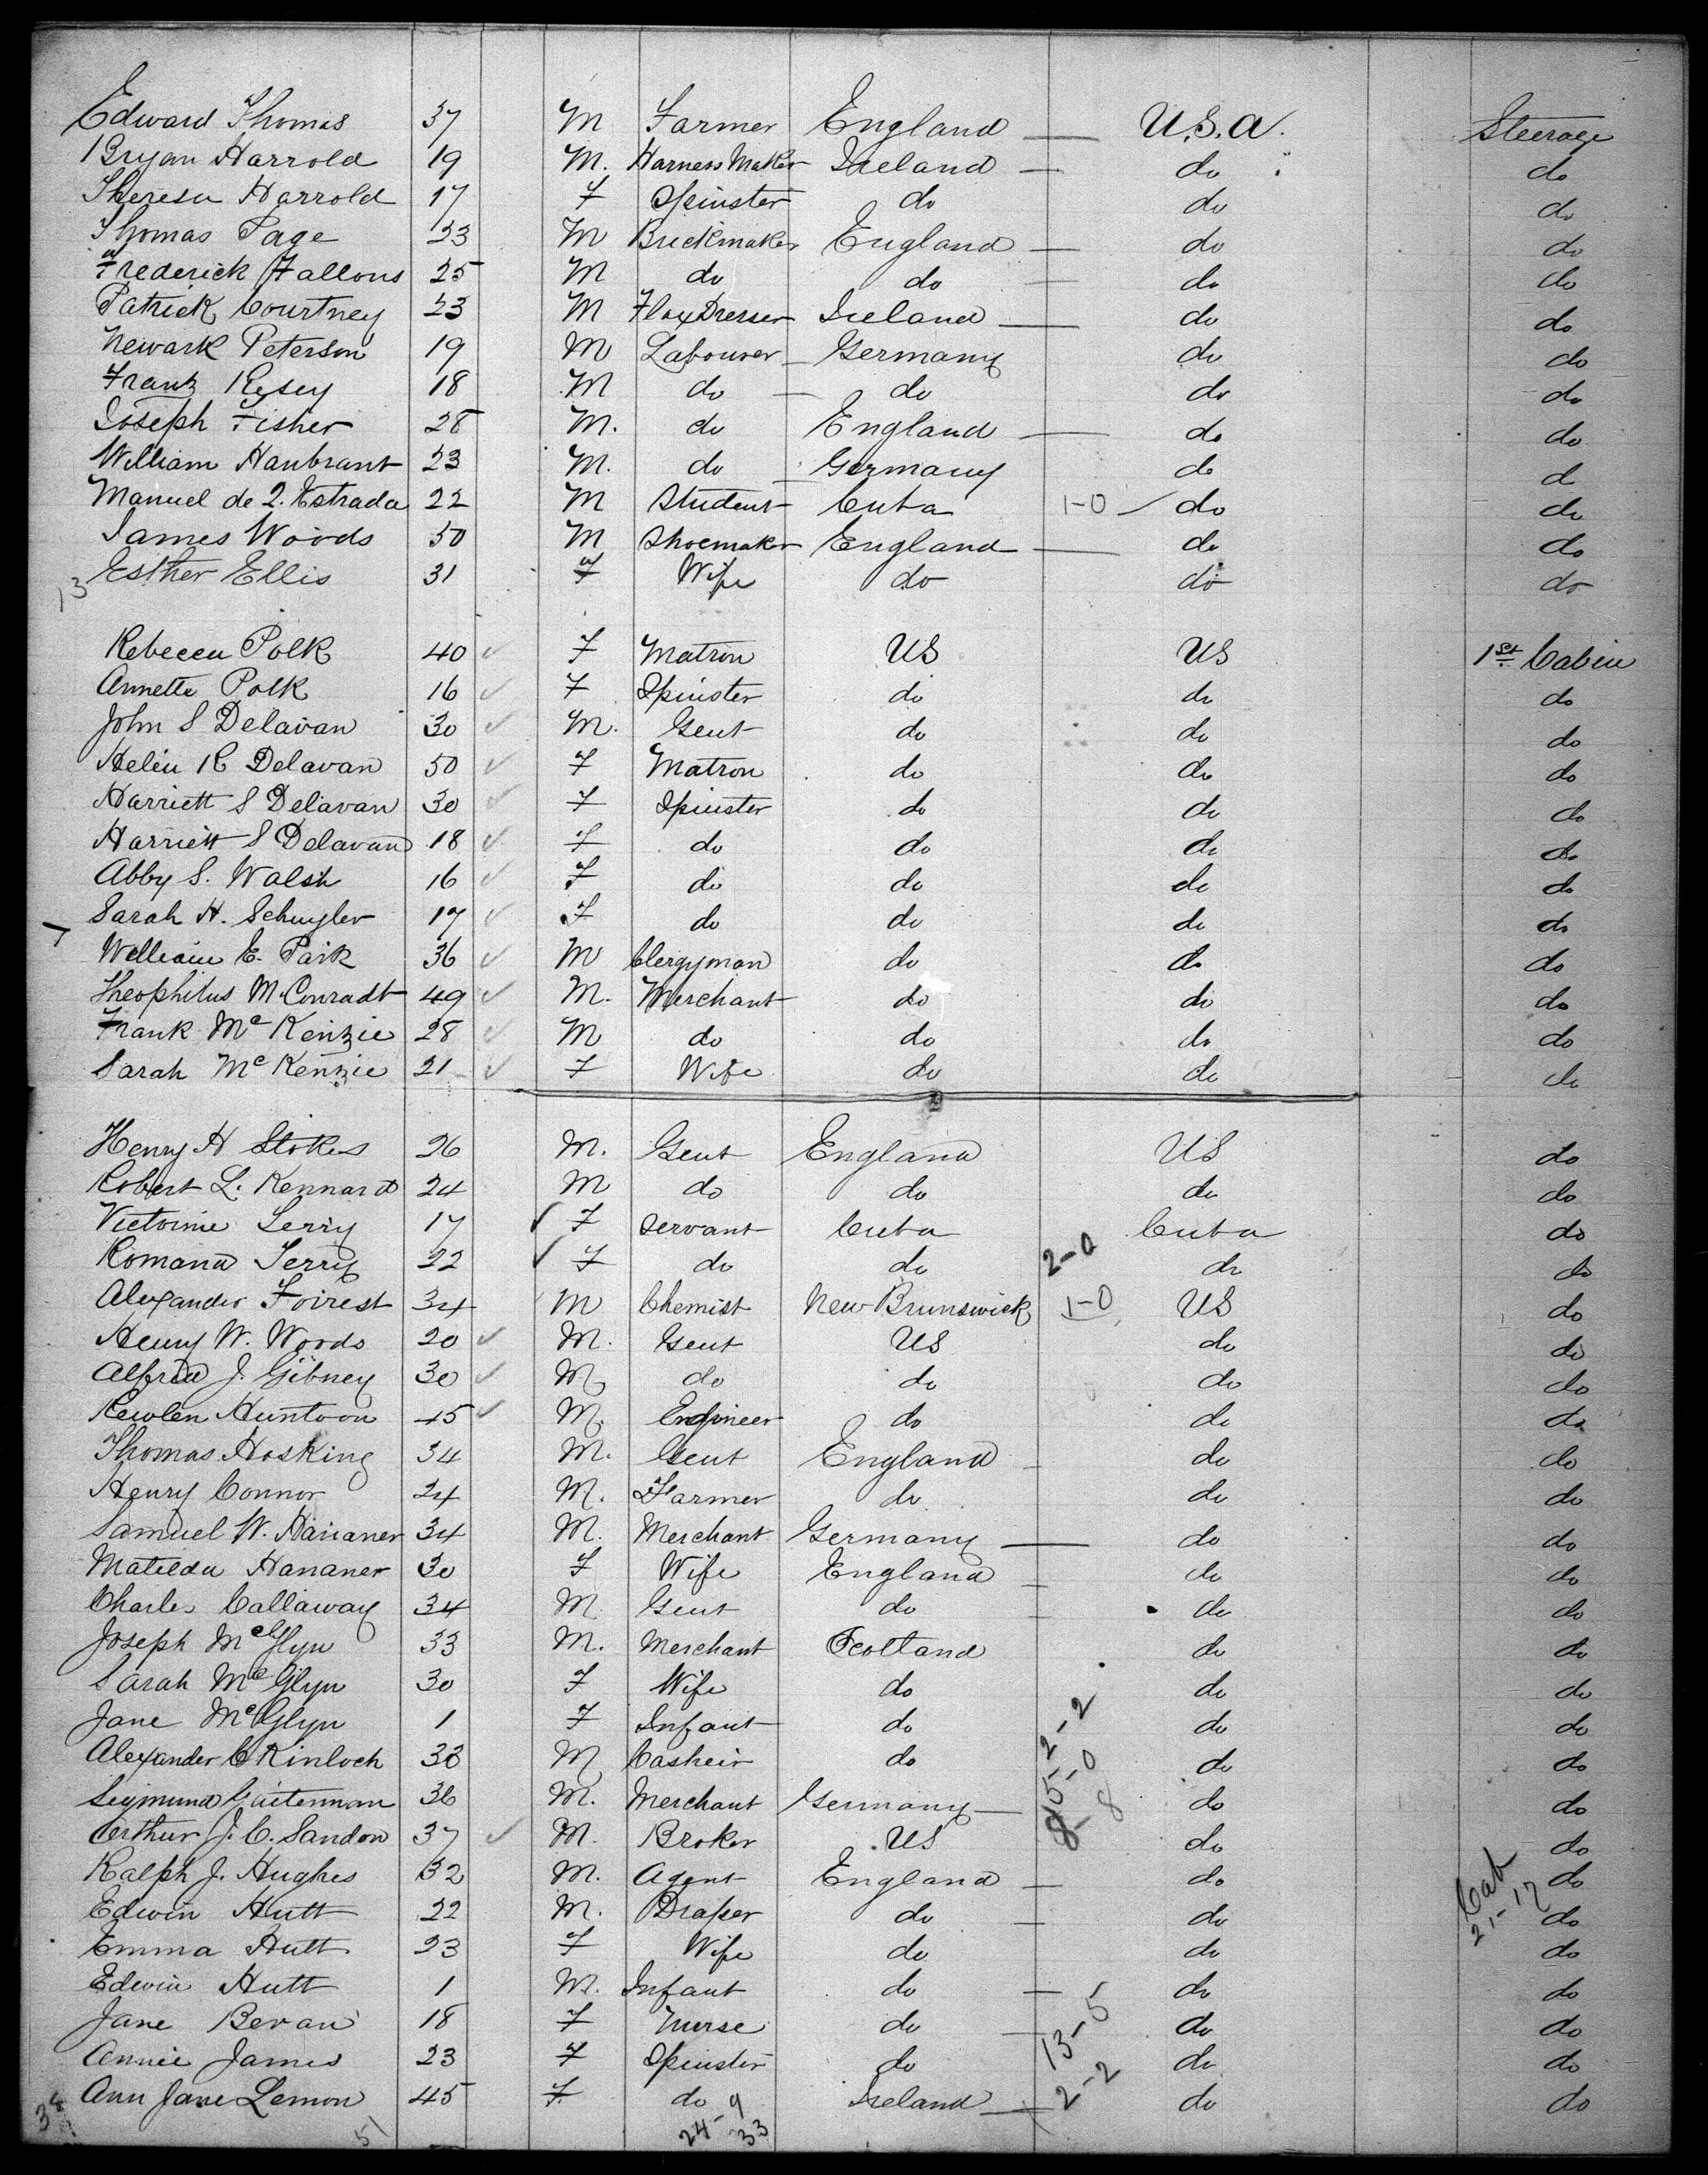 Edward Thomas 37 M Farmer England — U.S.A. Steerage
Bryan Harrold 19 M. Harness Maker Ireland — do do
Theresa Harrold 17 F Spinster do do do
Thomas Page 23 M Brickmaker England — do do
Frederick Fallons 25 M do do — do do
Patrick Courtney 23 M Flax Dresser Ireland — do do
Newark Peterson 19 M Labourer Germany do do
Frank 18 M do do do do
Joseph Fisher 28 M. do England — do do
William Hanbrant 23 M. do Germany do d
Manuel de Q. Estrada 22 M Student Cuba 1-0 do do
James Woods 50 M Shoemaker England — do do
13 Esther Ellis 31 F Wife do do do
Rebecca Polk 40 ✓ F Matron US US 1st Cabin
Annette Polk 16 ✓ F Spinster do do do
John S Delavan 30 ✓ M. Gent do do do
Helen R Delavan 50 ✓ F Matron do do do
Harriett S Delavan 30 ✓ F Spinster do do do
Harriett S Delavan 18 ✓ F do do do do
Abby S. Walsh 16 ✓ F do do do do
Sarah H. Schuyler 17 ✓ F do do do do
William E. Park 36 ✓ M Clergyman do do do
Theophilus M. Conradt 49 ✓ M. Merchant do do do
Frank McKenzie 28 ✓ M do do do do
Sarah McKenzie 21 ✓ F Wife do do do
Henry H Stokes 26 M. Gent England US do
Robert L. Kennard 24 M do do do do
Victorine Terry 17 ✓ F Servant Cuba Cuba do
Romana Terry 22 ✓ F do do 2-0 do do
Alexander Foirest 34 M Chemist New Brunswick 1-0 US do
Henry W. Woods 20 ✓ M. Gent US do do
Alfred J. Gibney 30 ✓ M do do do do
Rewlen Huntoon 45 ✓ M. Engineer do do do
Thomas Hosking 34 M. Gent England do do
Henry Connor 24 M. Farmer do do do
Samuel W. Hananer 34 M. Merchant Germany — do do
Matilda Hananer 30 F Wife England — do do
Charles Callaway 34 M Gent do — do do
Joseph McGlyn 33 M. Merchant Scotland do do
Sarah McGlyn 30 F Wife do do do
Jane McGlyn 1 F Infant do 2-2 do do
Alexander C Kinloch 38 M Casheir do 5-0 do do
Sigmund Guiterman 36 M. Merchant Germany — 8-8 do do
Arthur J. C. Sandon 37 ✓ M. Broker US do do
Ralph J. Hughes 32 M. Agent England — do do
Edwin Hutt 22 M. Draper do — do Cab 21-12 do
Emma Hutt 23 F Wife do do do
Edwin Hutt 1 M. Infant do — do do
Jane Bevan 18 F Nurse do — 13-5 do do
Annie James 23 F Spinster do do do
Ann Jane Lemon 45 F. do Ireland — 2-2 do do
38 51 24-9 33